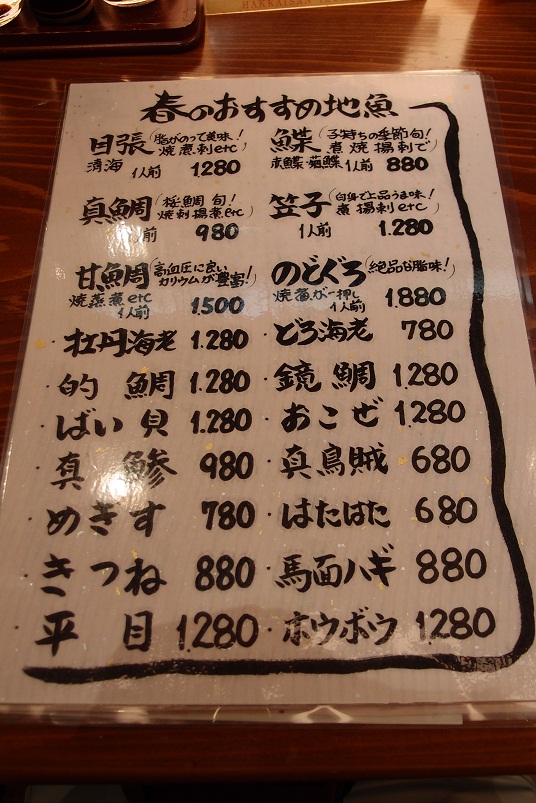 HAKKAISAN
春のおすすめ地魚
目張(脂がのって美味!焼煮刺etc)
清海 1人前 1280
鰈(子持ちの季節旬!煮焼揚刺で)
1人前 880
真鯛(桜鯛旬!焼刺揚煮etc)
1人前 980
笠子(白身で上品うま味!煮揚刺etc)
1人前 1.280
甘鯛(高血圧に良いカリウムが豊富!)
焼蒸煮etc 1人前 1.500
のどぐろ(絶品な脂味!)
焼煮が一押し 1人前 1.880
・牡丹海老 1.280
・どろ海老 780
・的鯛 1.280
・鏡鯛 1.280
・ばい貝 1.280
・おこぜ 1280
・真鯵 980
・真烏賊 680
・めぎす 780
・はたはた 680
・きつね 880
・馬面ハギ 880
・平目 1280
・ホウボウ 1280